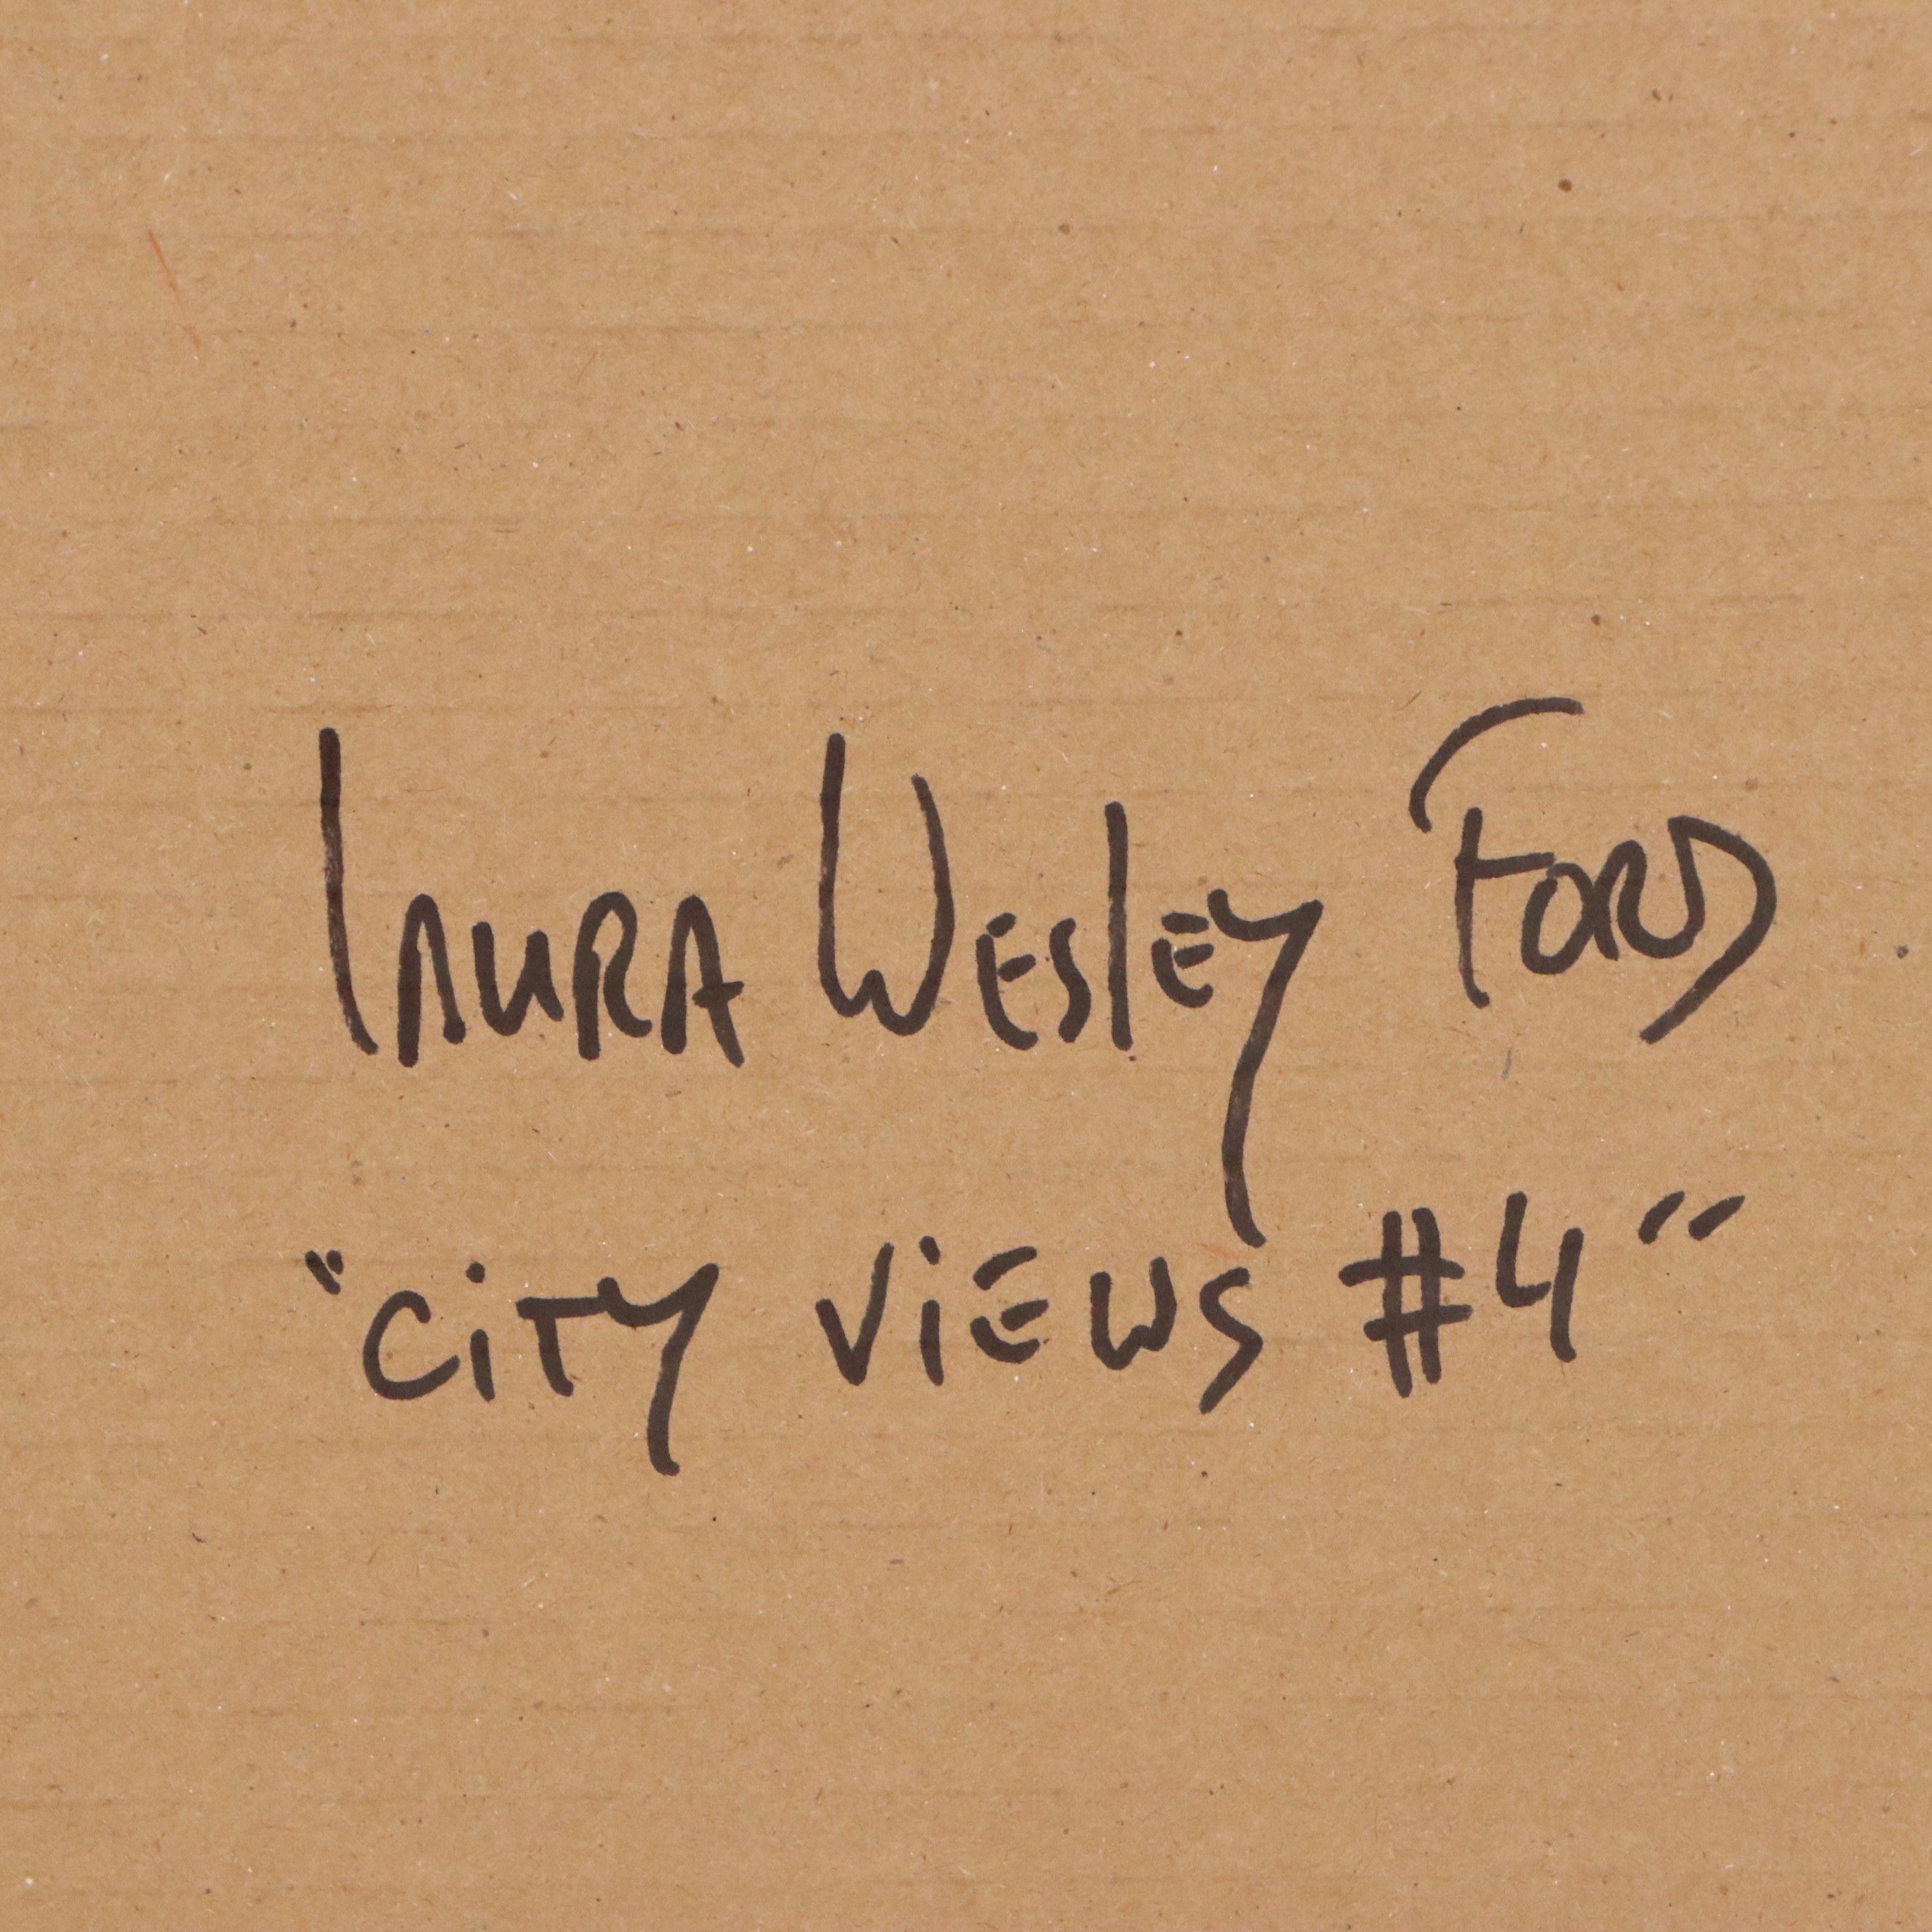 Laura Wesley Ford
"City Views #4"